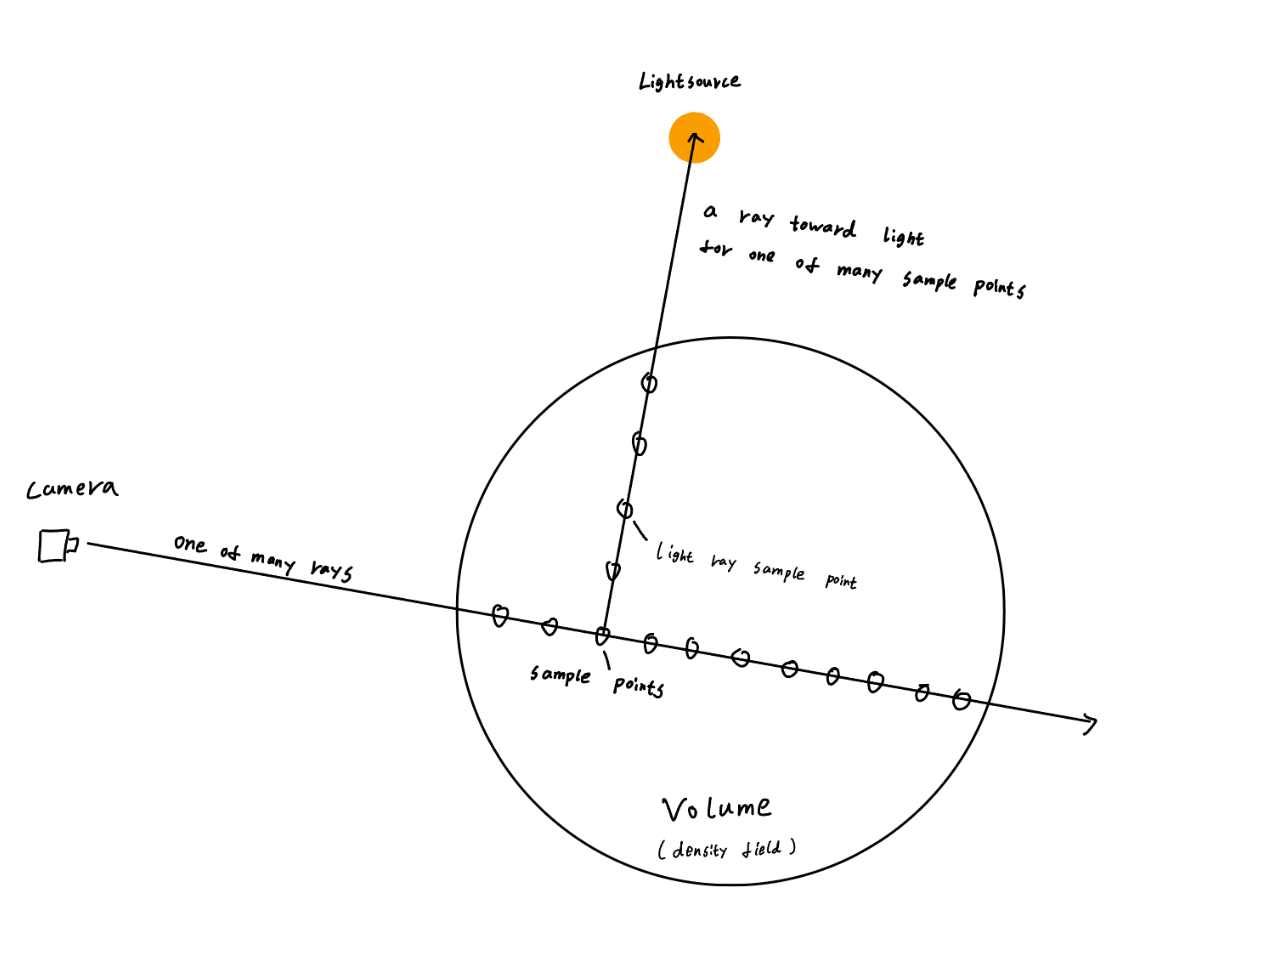 Lightsource
a ray toward light
for one of many sample points
Camera
one of many rays
light ray sample point
sample points
Volume
(density field)